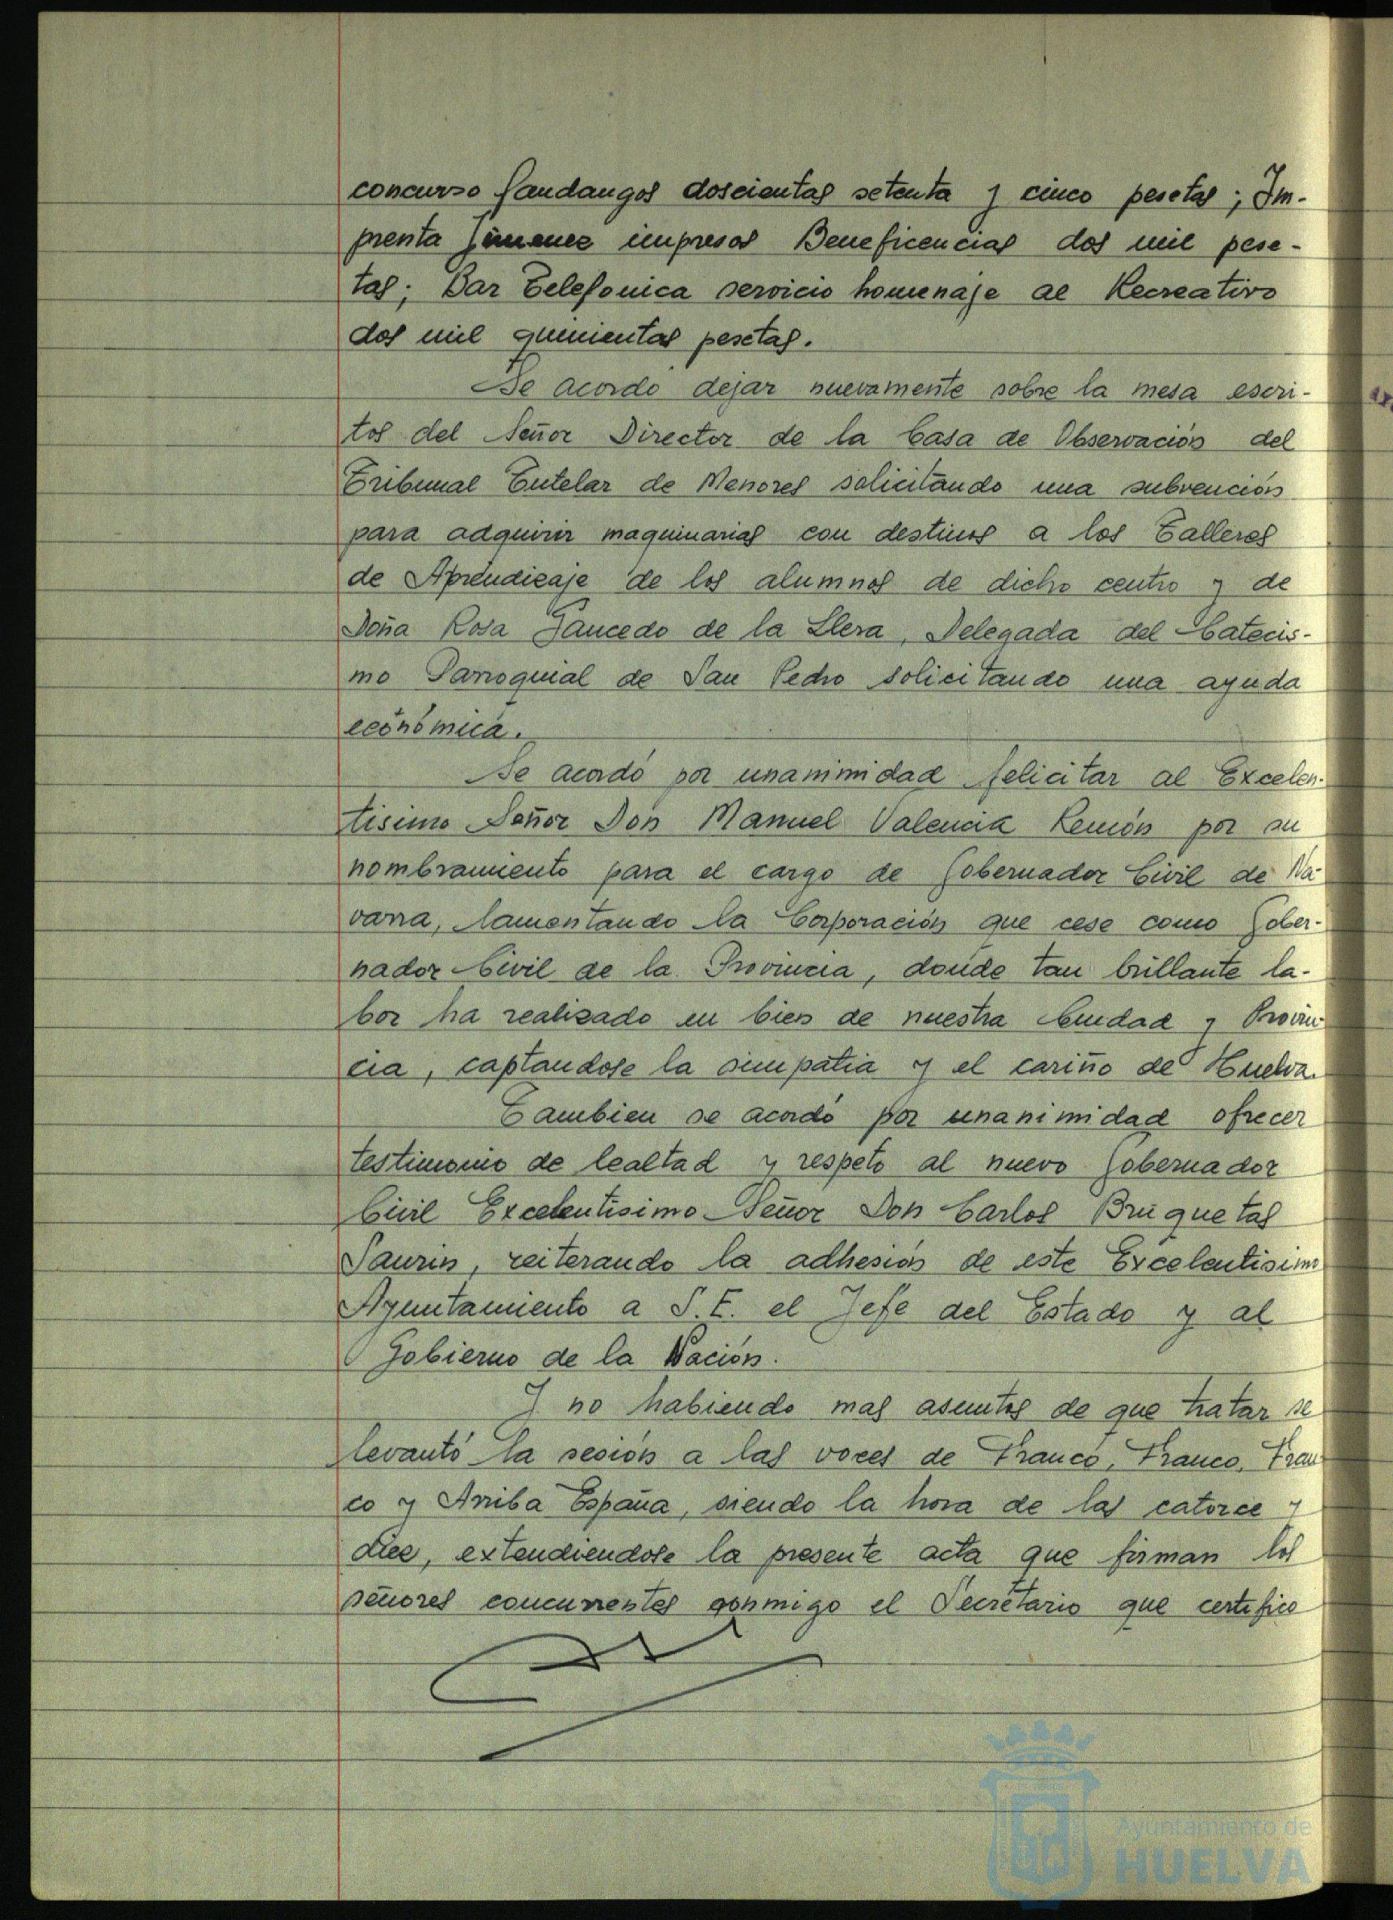 concurso fandangos doscientas setenta y cinco pesetas; Im-
prenta Jimenez impresos Beneficencias dos mil pese-
tas; Bar Telefonica servicio homenaje al Recreativo
dos mil quinientas pesetas.
Se acordo dejar nuevamente sobre la mesa escri-
tos del Señor Director de la Casa de Observación del
Tribunal Tutelar de Menores solicitando una subvención
para adquirir maquinarias con destinos a los Talleres
de Aprendizaje de los alumnos de dicho centro y de
Doña Rosa Saucedo de la Llera, Delegada del Catecis-
mo Parroquial de San Pedro solicitando una ayuda
económica.
Se acordó por unanimidad felicitar al Excelen-
tisimo Señor Don Manuel Valencia Remón por su
nombramiento para el cargo de Gobernador Civil de Na-
varra, lamentando la Corporación que cese como Gober-
nador Civil de la Provincia, donde tan brillante la-
bor ha realizado en bien de nuestra Ciudad y Provin-
cia, captandose la simpatia y el cariño de Huelva.
Tambien se acordó por unanimidad ofrecer
testimonio de lealtad y respeto al nuevo Gobernador
Civil Excelentisimo Señor Don Carlos Bruquetas
Saurin, reiterando la adhesión de este Excelentisimo
Ayuntamiento a S.E. el Jefe del Estado y al
Gobierno de la Nación.
Y no habiendo mas asuntos de que tratar se
levantó la sesión a las voces de Franco, Franco, Fran
co y Arriba España, siendo la hora de las catorce y
diez, extendiendose la presente acta que firman los
señores concurrentes conmigo el Secretario que certifico
Ayuntamiento de
HUELVA